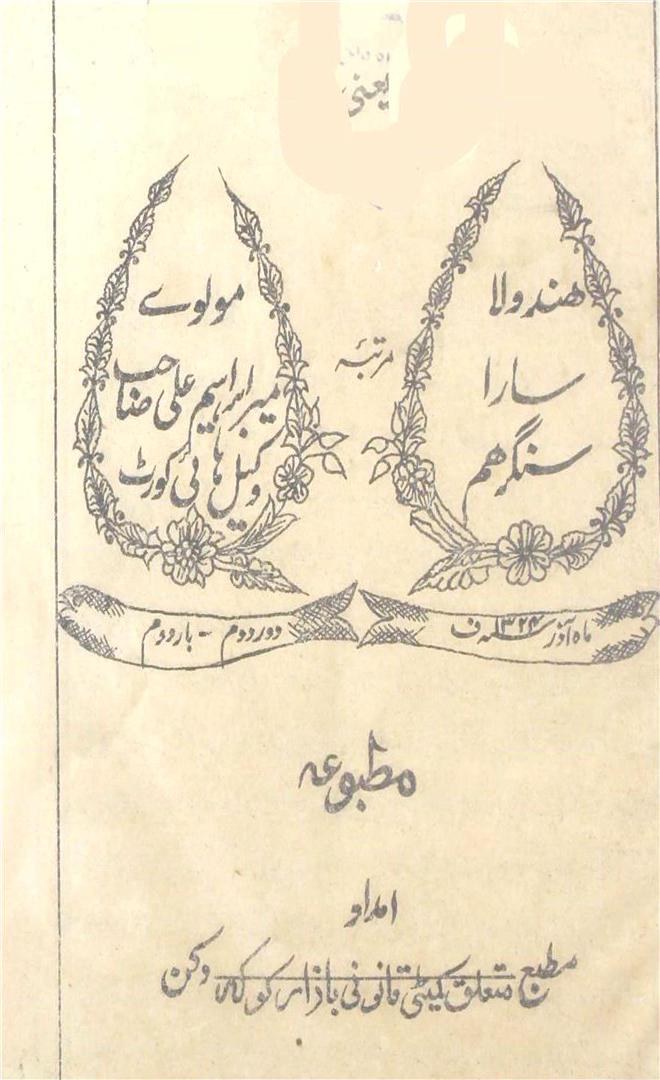 یعنی
هندولا
سارا
سنگرهم
مرتبہٴ
مولوے
میر ابراہیم علی صاحب
وکیل ہائی کورٹ
ماہ آذر ۱۳۲۴ لہ ف
دور دوم - بار دوم
مطبوعہ
امداد
مطبع متعلق کمیٹی قانونی بازار کوکہ دکن